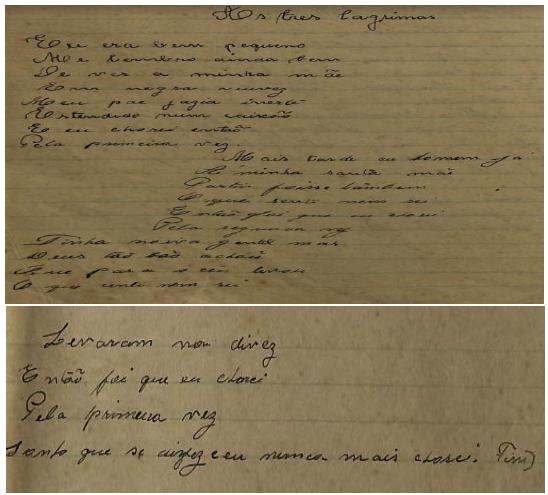 As tres lagrimas
Eu era bem pequeno
Me lembro ainda bem
De ver a minha mãe
Em negra viuvez
Meu pae jazia inerte
Estendido num caixão
E eu chorei então
Pela primeira vez.
Mais tarde eu homem já
A minha santa mãe
Partiu foisse tambem
O que senti nem sei
Então foi que eu chorei
Pela segunda vez
Tinha noiva gentil mas
Deus tão bôa achou
Que para o céu levou
O que senti nem sei
Levaram
Então foi que eu chorei
Pela primeira vez
que se nunca mais chorei. Fim)